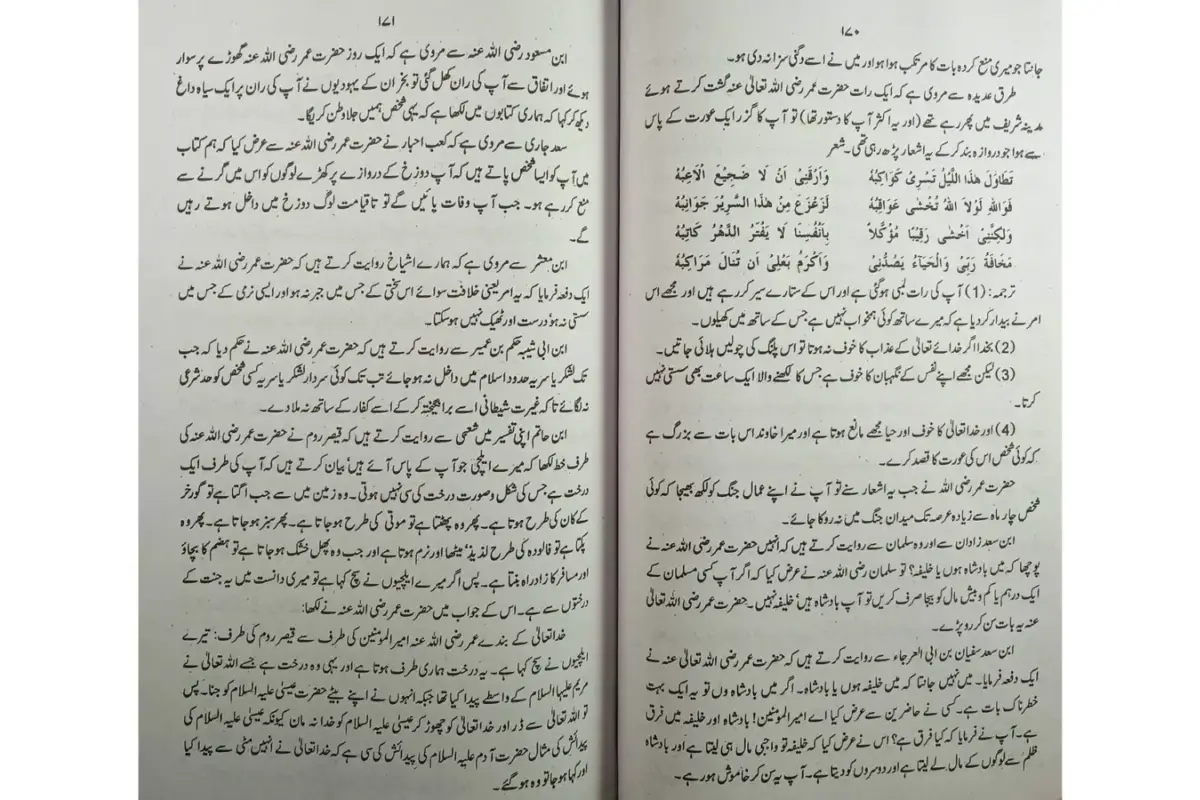 ۱۷۰
جانتا جو میری منع کردہ بات کا مرتکب ہوا ہو اور میں نے اسے دگنی سزا نہ دی ہو۔
طرق عدیدہ سے مروی ہے کہ ایک رات حضرت عمر رضی اللہ تعالیٰ عنہ گشت کرتے ہوئے
مدینہ شریف میں پھر رہے تھے (اور یہ اکثر آپ کا دستور تھا) تو آپ کا گزر ایک عورت کے پاس
سے ہوا جو دروازہ بند کر کے یہ اشعار پڑھ رہی تھی۔ شعر
تَطَاوَلَ هٰذَا اللَّيْلُ تَسْرِىْ كَوَاكِبُهُ وَاَرَّقَنِىْ اَنْ لَا ضَجِيْعَ اُلَاعِبُهُ
فَوَاللهِ لَوْلَا اللهُ تُخْشٰى عَوَاقِبُهُ لَزُعْزِعَ مِنْ هٰذَا السَّرِيْرِ جَوَانِبُهُ
وَلٰكِنَّنِىْ اَخْشٰى رَقِيْبًا مُؤَكَّلًا بِاَنْفُسِنَا لَا يَفْتُرُ الدَّهْرُ كَاتِبُهُ
مَخَافَةُ رَبِّىْ وَالْحَيَاءُ يَصُدُّنِىْ وَاَكْرَمُ بَعْلِىْ اَنْ تُنَالَ مَرَاكِبُهُ
ترجمہ: (1) آپ کی رات لمبی ہو گئی ہے اور اس کے ستارے سیر کر رہے ہیں اور مجھے اس
امر نے بیدار کر دیا ہے کہ میرے ساتھ کوئی ہمخواب نہیں ہے جس کے ساتھ میں کھیلوں۔
(2) بخدا اگر خدائے تعالیٰ کے عذاب کا خوف نہ ہوتا تو اس پلنگ کی چولیں ہلائی جاتیں۔
(3) لیکن مجھے اپنے نفس کے نگہبان کا خوف ہے جس کا لکھنے والا ایک ساعت بھی سستی نہیں
کرتا۔
(4) اور خدا تعالیٰ کا خوف اور حیا مجھے مانع ہوتا ہے اور میرا خاوند اس بات سے بزرگ ہے
کہ کوئی شخص اس کی عورت کا قصد کرے۔
حضرت عمر رضی اللہ نے جب یہ اشعار سنے تو آپ نے اپنے عمال جنگ کو لکھ بھیجا کہ کوئی
شخص چار ماہ سے زیادہ عرصہ تک میدان جنگ میں نہ روکا جائے۔
ابن سعد زادان سے اور وہ سلمان سے روایت کرتے ہیں کہ انہیں حضرت عمر رضی اللہ عنہ نے
پوچھا کہ میں بادشاہ ہوں یا خلیفہ؟ تو سلمان رضی اللہ عنہ نے عرض کیا کہ اگر آپ کسی مسلمان کے
ایک درہم یا کم و بیش مال کو بیجا صرف کریں تو آپ بادشاہ ہیں، خلیفہ نہیں۔ حضرت عمر رضی اللہ تعالیٰ
عنہ یہ بات سن کر رو پڑے۔
ابن سعد سفیان بن ابی العرجاء سے روایت کرتے ہیں کہ حضرت عمر رضی اللہ تعالیٰ عنہ نے
ایک دفعہ فرمایا۔ میں نہیں جانتا کہ میں خلیفہ ہوں یا بادشاہ۔ اگر میں بادشاہ وں تو یہ ایک بہت
خطرناک بات ہے۔ کسی نے حاضرین سے عرض کیا اے امیر المؤمنین! بادشاہ اور خلیفہ میں فرق
ہے۔ آپ نے فرمایا کہ کیا فرق ہے؟ اس نے عرض کیا کہ خلیفہ تو واجبی مال ہی لیتا ہے اور بادشاہ
ظلم سے لوگوں کے مال لے لیتا ہے اور دوسروں کو دیتا ہے۔ آپ یہ سن کر خاموش ہو رہے۔
۱۷۱
ابن مسعود رضی اللہ عنہ سے مروی ہے کہ ایک روز حضرت عمر رضی اللہ عنہ گھوڑے پر سوار
ہوئے اور اتفاق سے آپ کی ران کھل گئی تو نجران کے یہودیوں نے آپ کی ران پر ایک سیاہ داغ
دیکھ کر کہا کہ ہماری کتابوں میں لکھا ہے کہ یہی شخص ہمیں جلا وطن کریگا۔
سعد جاری سے مروی ہے کہ کعب احبار نے حضرت عمر رضی اللہ عنہ سے عرض کیا کہ ہم کتاب
میں آپ کو ایسا شخص پاتے ہیں کہ آپ دوزخ کے دروازے پر کھڑے لوگوں کو اس میں گرنے سے
منع کر رہے ہو۔ جب آپ وفات پائیں گے تو تا قیامت لوگ دوزخ میں داخل ہوتے رہیں
گے۔
ابن معشر سے مروی ہے کہ ہمارے اشیاخ روایت کرتے ہیں کہ حضرت عمر رضی اللہ عنہ نے
ایک دفعہ فرمایا کہ یہ امر یعنی خلافت سوائے اس سختی کے جس میں جبر نہ ہو اور ایسی نرمی کے جس میں
سستی نہ ہو، درست اور ٹھیک نہیں ہو سکتا۔
ابن ابی شیبہ حکم بن عمیر سے روایت کرتے ہیں کہ حضرت عمر رضی اللہ عنہ نے حکم دیا کہ جب
تک لشکر یا سریہ حدود اسلام میں داخل نہ ہو جائے تب تک کوئی سردار لشکر یا سریہ کسی شخص کو حد شرعی
نہ لگائے تاکہ غیرت شیطانی اسے برانگیختہ کر کے اسے کفار کے ساتھ نہ ملا دے۔
ابن حاتم اپنی تفسیر میں شعبی سے روایت کرتے ہیں کہ قیصر روم نے حضرت عمر رضی اللہ عنہ کی
طرف خط لکھا کہ میرے ایلچی جو آپ کے پاس آئے ہیں، بیان کرتے ہیں کہ آپ کی طرف ایک
درخت ہے جس کی شکل و صورت درخت کی سی نہیں ہوتی۔ وہ زمین میں سے جب اگتا ہے تو گورخر
کے کان کی طرح ہوتا ہے۔ پھر وہ پھٹتا ہے تو موتی کی طرح ہو جاتا ہے۔ پھر سبز ہو جاتا ہے۔ پھر وہ
پکتا ہے تو فالودہ کی طرح لذیذ، میٹھا اور نرم ہوتا ہے اور جب وہ پھل خشک ہو جاتا ہے تو ہضم کا بچاؤ
اور مسافر کا زاد راہ بنتا ہے۔ پس اگر میرے ایلچیوں نے سچ کہا ہے تو میری دانست میں یہ جنت کے
درختوں سے ہے۔ اس کے جواب میں حضرت عمر رضی اللہ عنہ نے لکھا:
خدا تعالیٰ کے بندے عمر رضی اللہ عنہ امیر المؤمنین کی طرف سے قیصر روم کی طرف: تیرے
ایلچیوں نے سچ کہا ہے۔ یہ درخت ہماری طرف ہوتا ہے اور یہی وہ درخت ہے جسے اللہ تعالیٰ نے
مریم علیہا السلام کے واسطے پیدا کیا تھا جبکہ انہوں نے اپنے بیٹے حضرت عیسیٰ علیہ السلام کو جنا۔ پس
تو اللہ تعالیٰ سے ڈر اور خدا تعالیٰ کو چھوڑ کر عیسیٰ علیہ السلام کو خدا نہ مان کیونکہ عیسیٰ علیہ السلام کی
پیدائش کی مثال حضرت آدم علیہ السلام کی پیدائش کی سی ہے کہ خدا تعالیٰ نے انہیں مٹی سے پیدا کیا
اور کہا ہو جا تو وہ ہو گئے۔